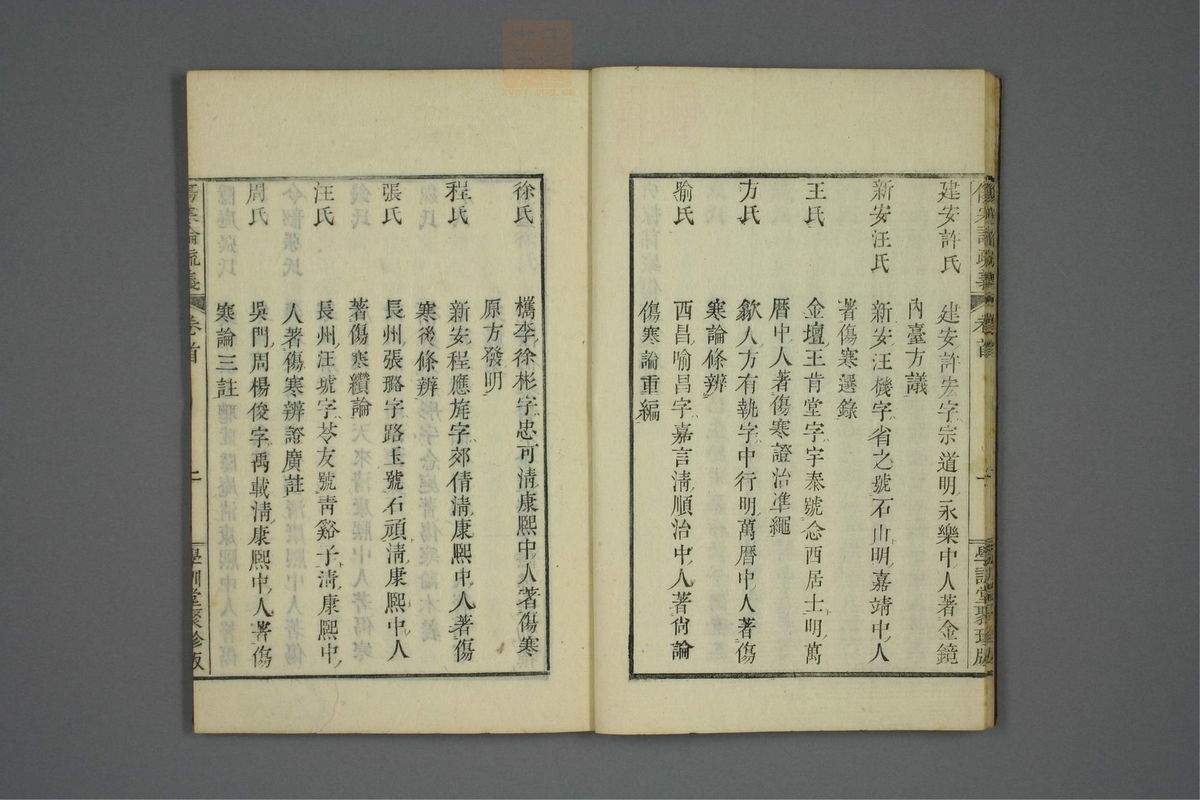 傷寒論疏義 卷首 一 學訓堂聚珍版
建安許氏 建安許宏字宗道明永樂中人著金鏡
內臺方議
新安汪氏 新安汪機字省之號石山明嘉靖中人
著傷寒選錄
王氏 金壇王肯堂字宇泰號念西居士明萬
曆中人著傷寒證治準繩
方氏 歙人方有執字中行明萬曆中人著傷
寒論條辨
喻氏 西昌喻昌字嘉言淸順治中人著尙論
傷寒論重編
徐氏 檇李徐彬字忠可淸康熙中人著傷寒
原方發明
程氏 新安程應旄字郊倩淸康熙中人著傷
寒後條辨
張氏 長州張璐字路玉號石頑淸康熙中人
著傷寒纘論
汪氏 長州汪琥字苓友號靑谿子淸康熙中
人著傷寒辨證廣註
周氏 吳門周楊俊字禹載淸康熙中人著傷
寒論三註
傷寒論疏義 卷首 二 學訓堂聚珍版